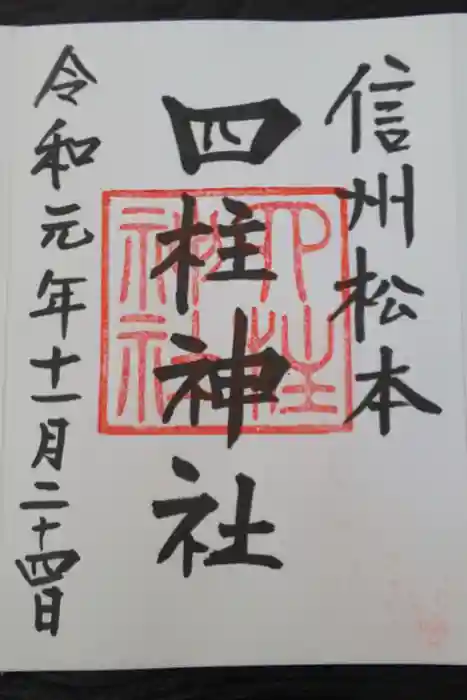 信州松本
四柱神社
四柱
神社
令和元年十一月二十四日